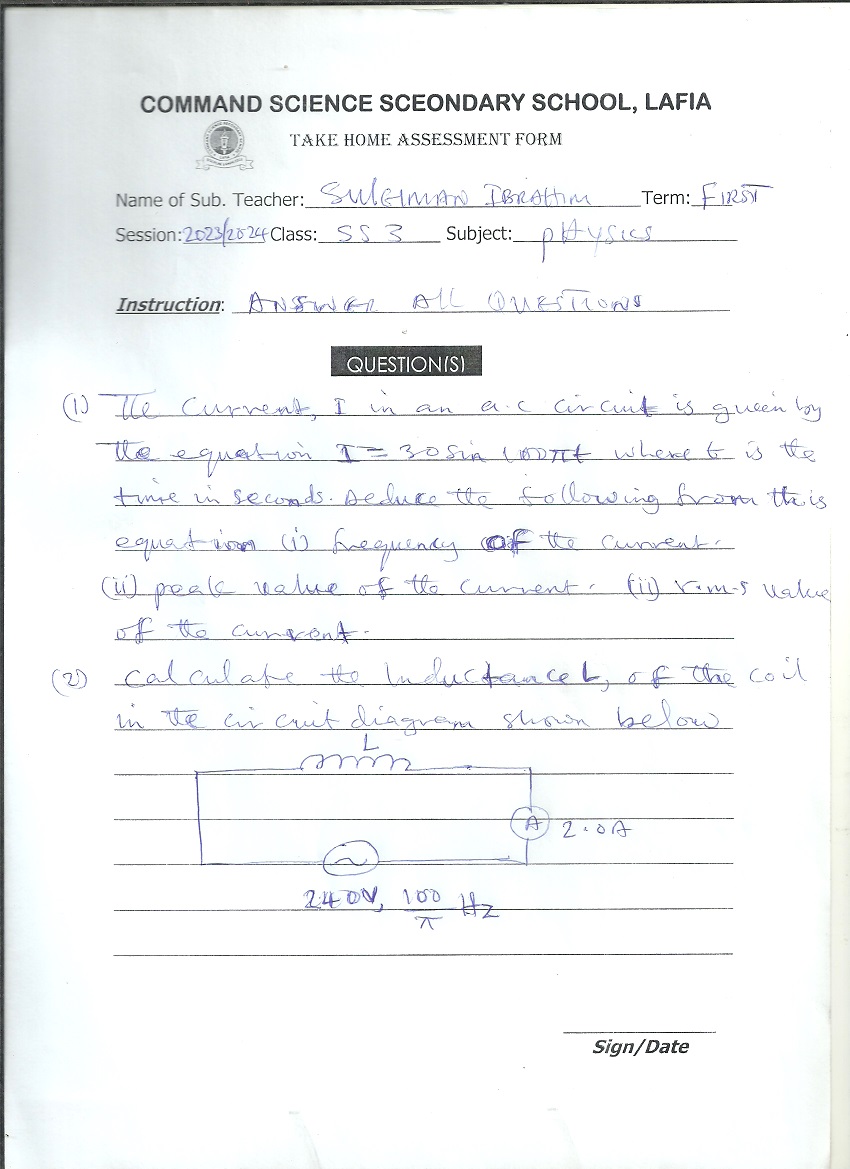 COMMAND SCIENCE SCEONDARY SCHOOL, LAFIA
TAKE HOME ASSESSMENT FORM
Name of Sub. Teacher: SULEIMAN IBRAHIM Term: FIRST
Session: 2023/2024 Class: SS 3 Subject: pHYSICS
Instruction: ANSWER All QUESTIONS
QUESTION(S)
(1) The Current, I in an a.c circuit is given by
the equation I = 30 sin 100πt where t is the
time in seconds. Deduce the following from this
equation (i) frequency of the current.
(ii) peak value of the current. (ii) r.m.s value
of the current.
(2) Calculate the Inductance L, of the coil
in the circuit diagram shown below
L
A 2.0A
240V, 100/π Hz
Sign/Date